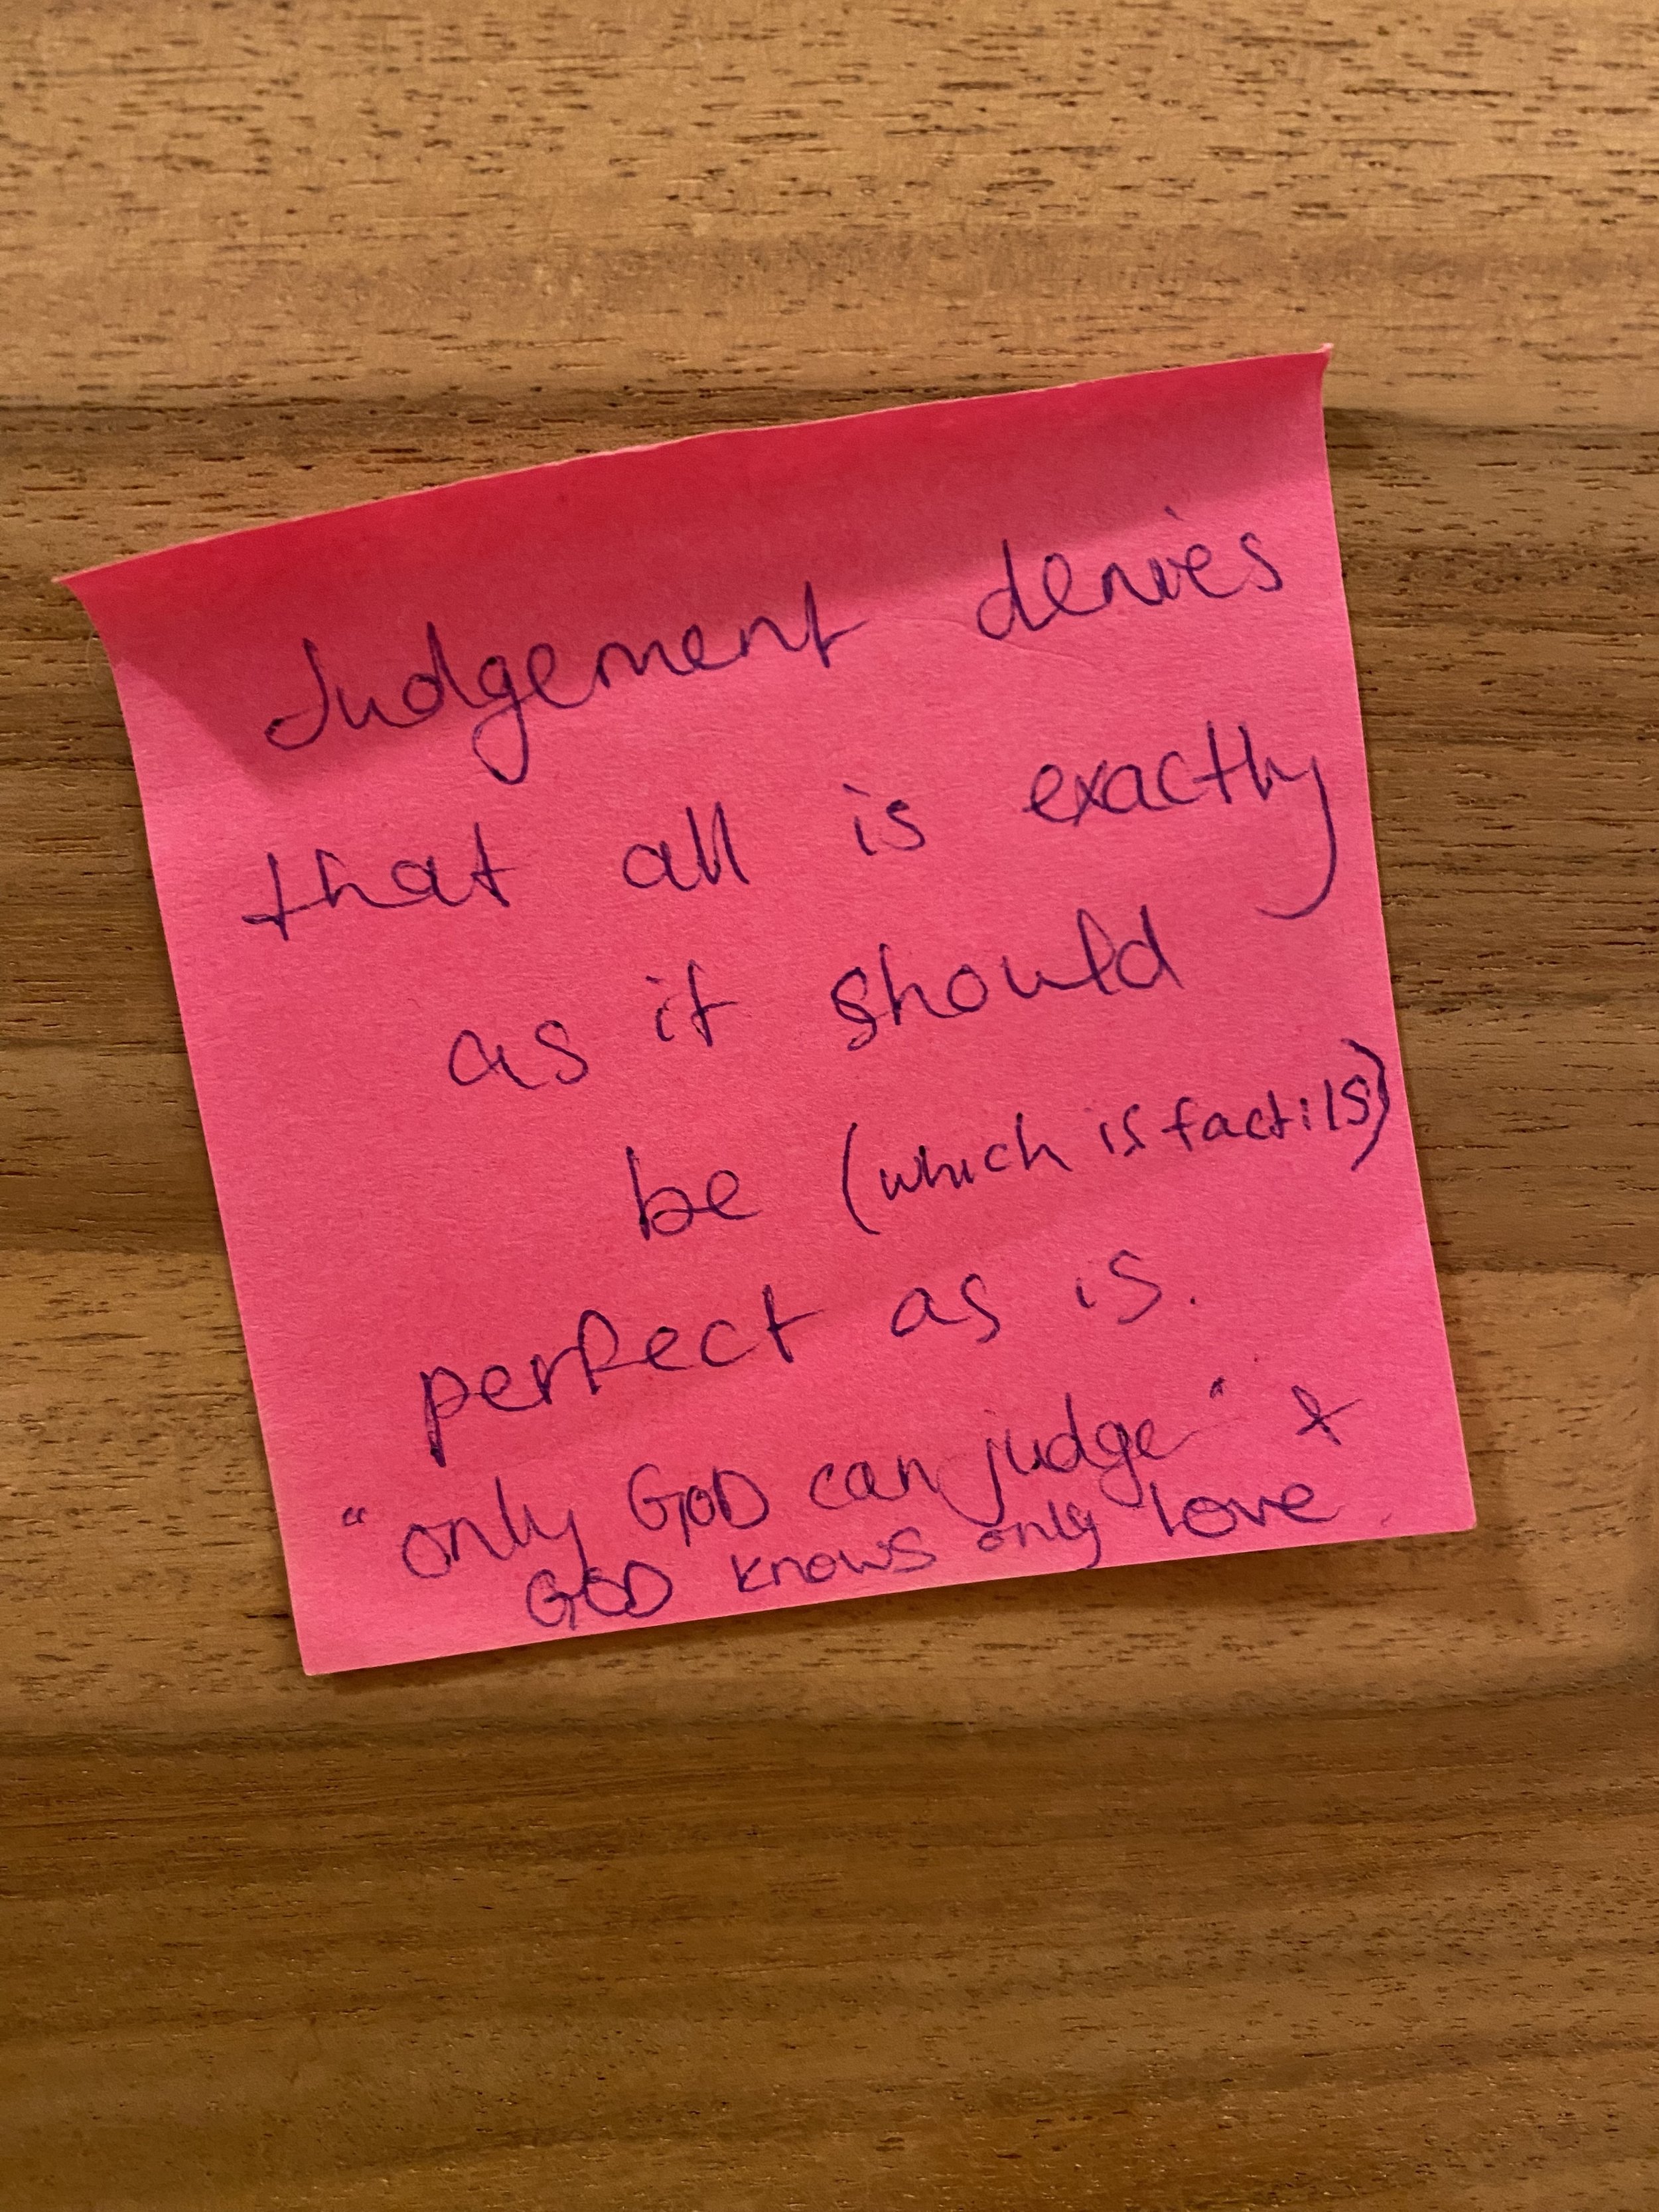 Judgement denies
that all is exactly
as it should
be (which is fact: IS)
perfect as is.
"only GOD can judge" &
GOD knows only love